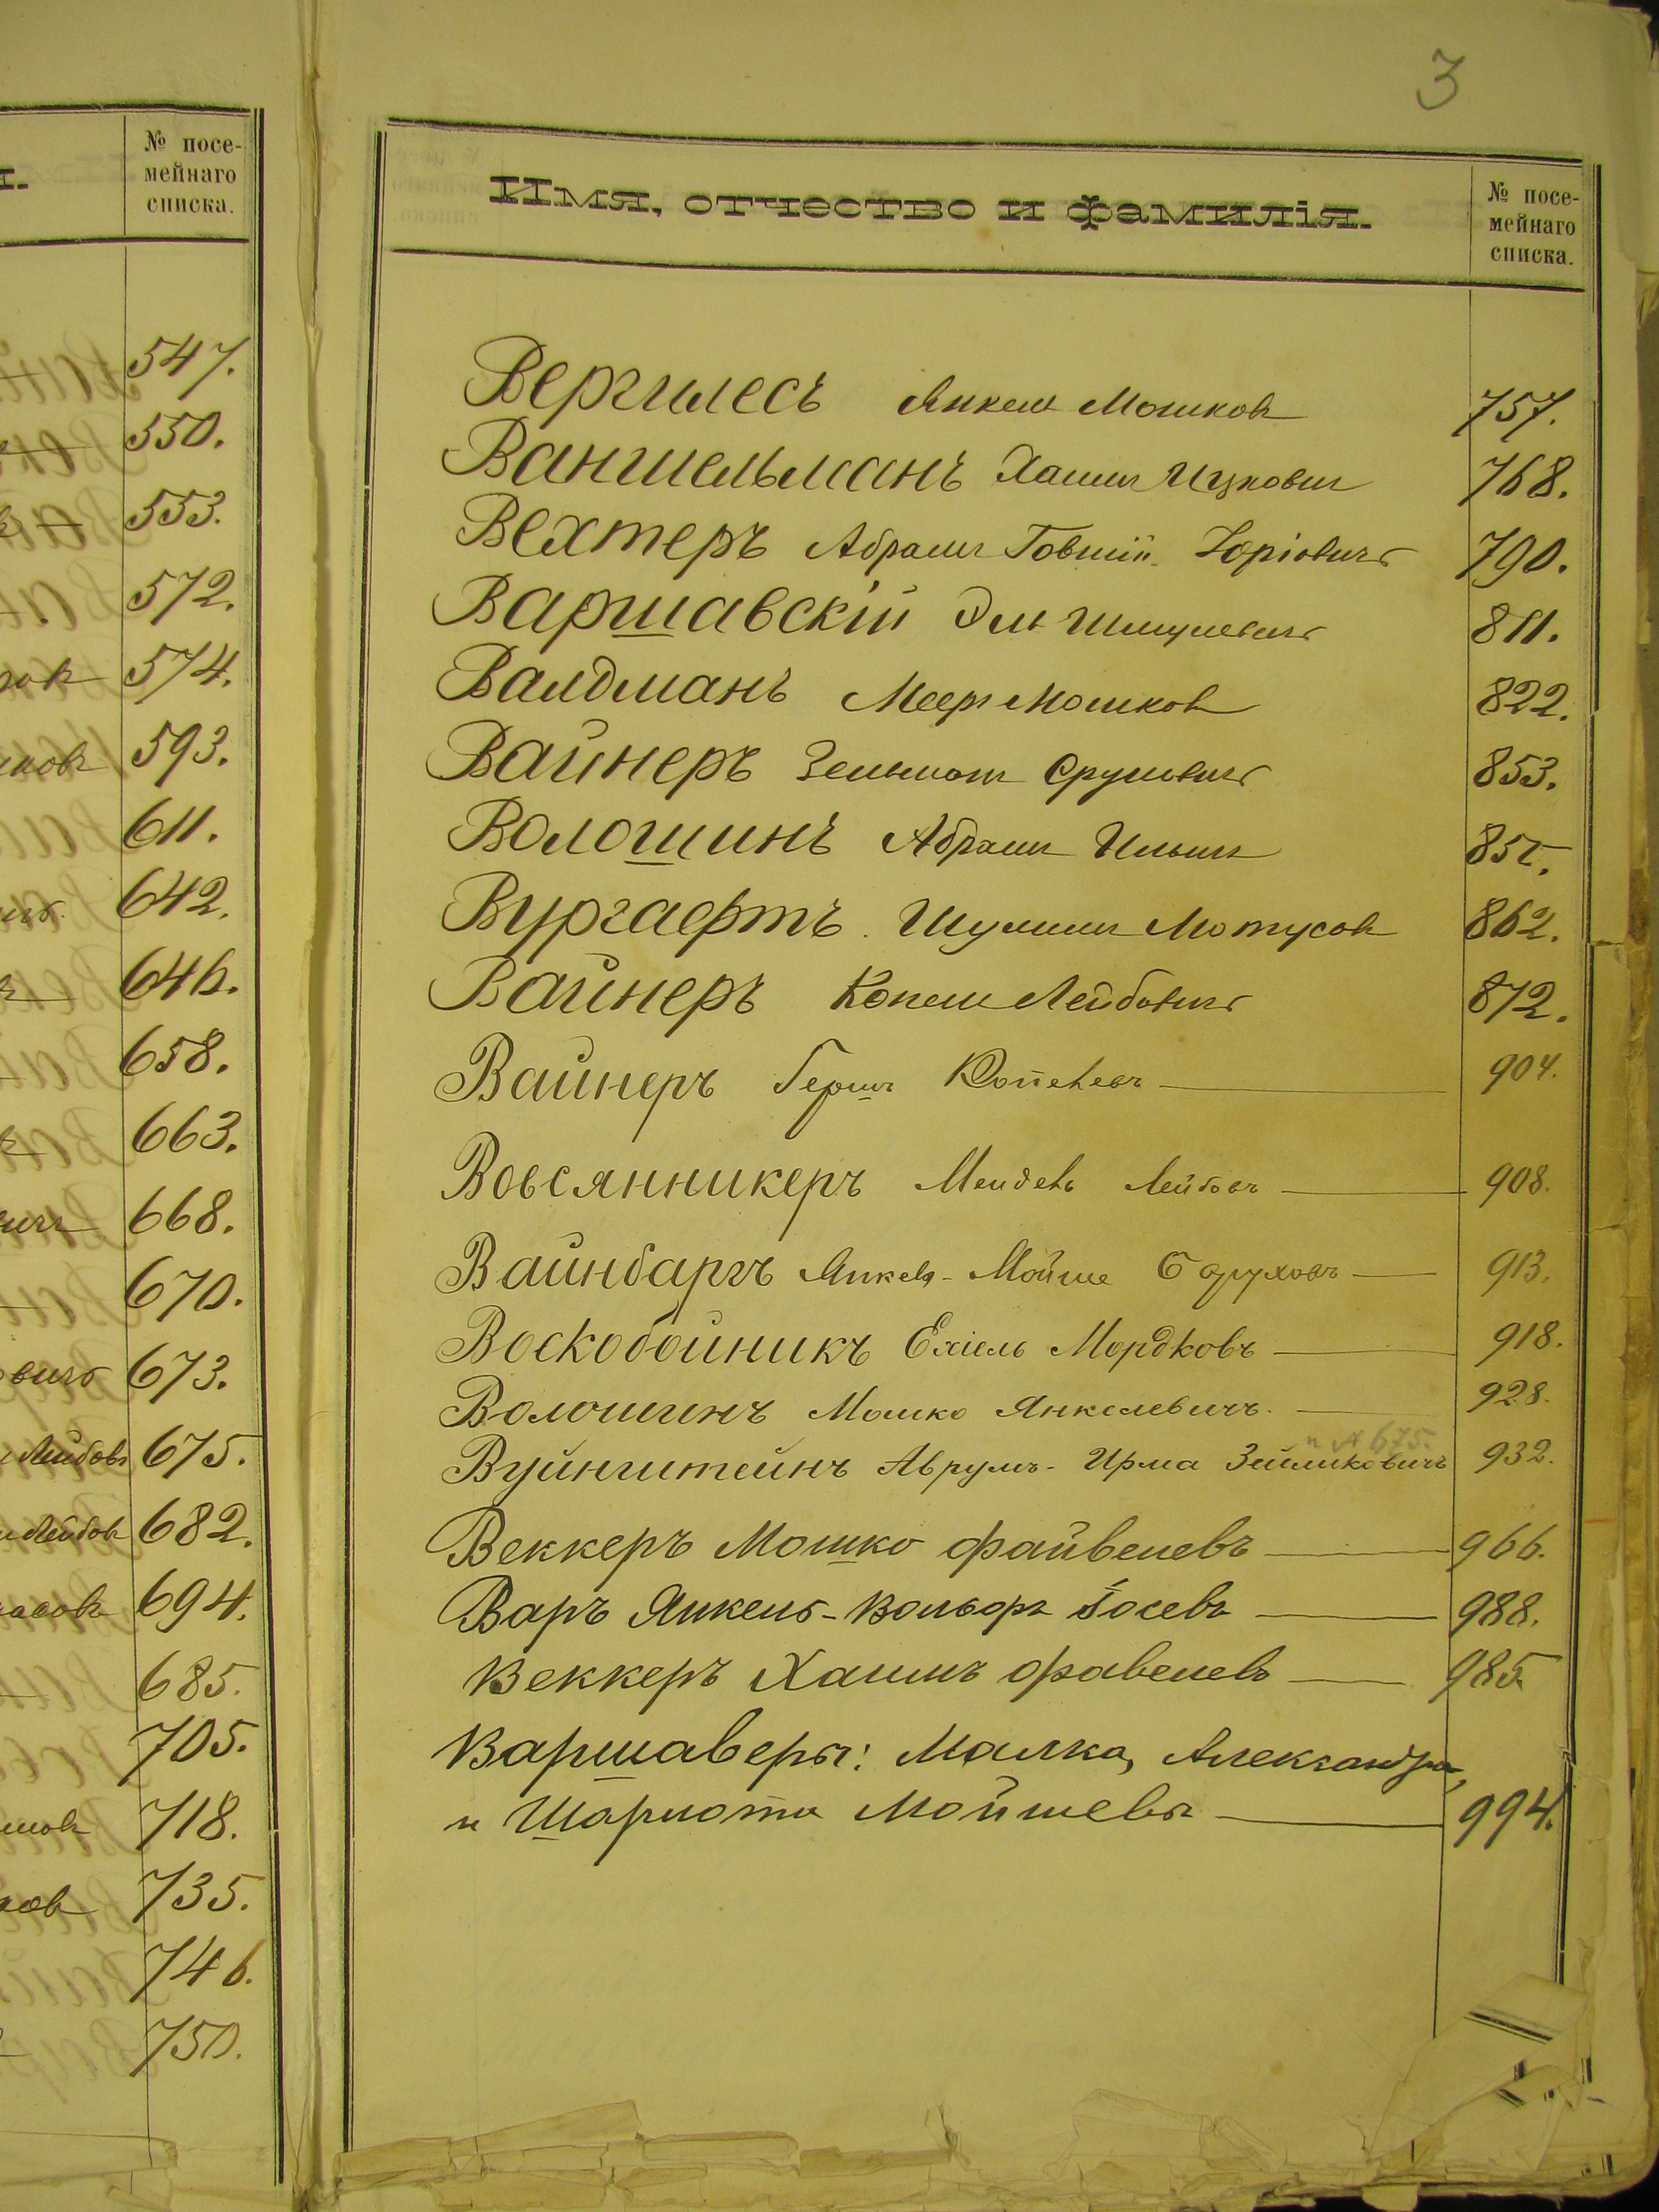 № посе-
мейнаго
списка.
547.
550.
553.
572.
574.
593.
611.
642.
646.
658.
663.
668.
670.
673.
Лейбовъ 675.
Лейбов 682.
694.
685.
705.
718.
735.
746.
750.
3
Имя, отчество и фамилія.
№ посе-
мейнаго
списка.
Вергилесъ Янкель Мошков 757.
Ваншельманъ Хаим Ицкович 768.
Вехтеръ Абрамъ Говшій 790.
Варшавскій Эль Шмулевичъ 811.
Валдманъ Меер Мошков 822.
Вайнеръ Зельман Срулевичъ 853.
Волошинъ Абрам Ильич 855.
Вургафтъ Шулим Мотусов 862.
Вайнеръ Копель Лейбовичъ 872.
Вайнеръ Гершъ Копелевъ 904.
Вовсянникеръ Мендель Лейбовъ 908.
Вайнбаргъ Янкель-Мойше Боруховъ 913.
Воскобойникъ Ехіель Мордковъ 918.
Волошинъ Мошко Янкелевичъ 928.
и № 675.
Вуйнгитейнъ Аврумъ-Ирма Зейликовичъ 932.
Веккеръ Мошко Файвелевъ 966.
Варъ Янкель-Вольфъ Іосевъ 988.
Веккеръ Хаимъ Фавелевъ 985
Варшаверы: Малка, Александра,
и Шарлота Мойшевы 994.